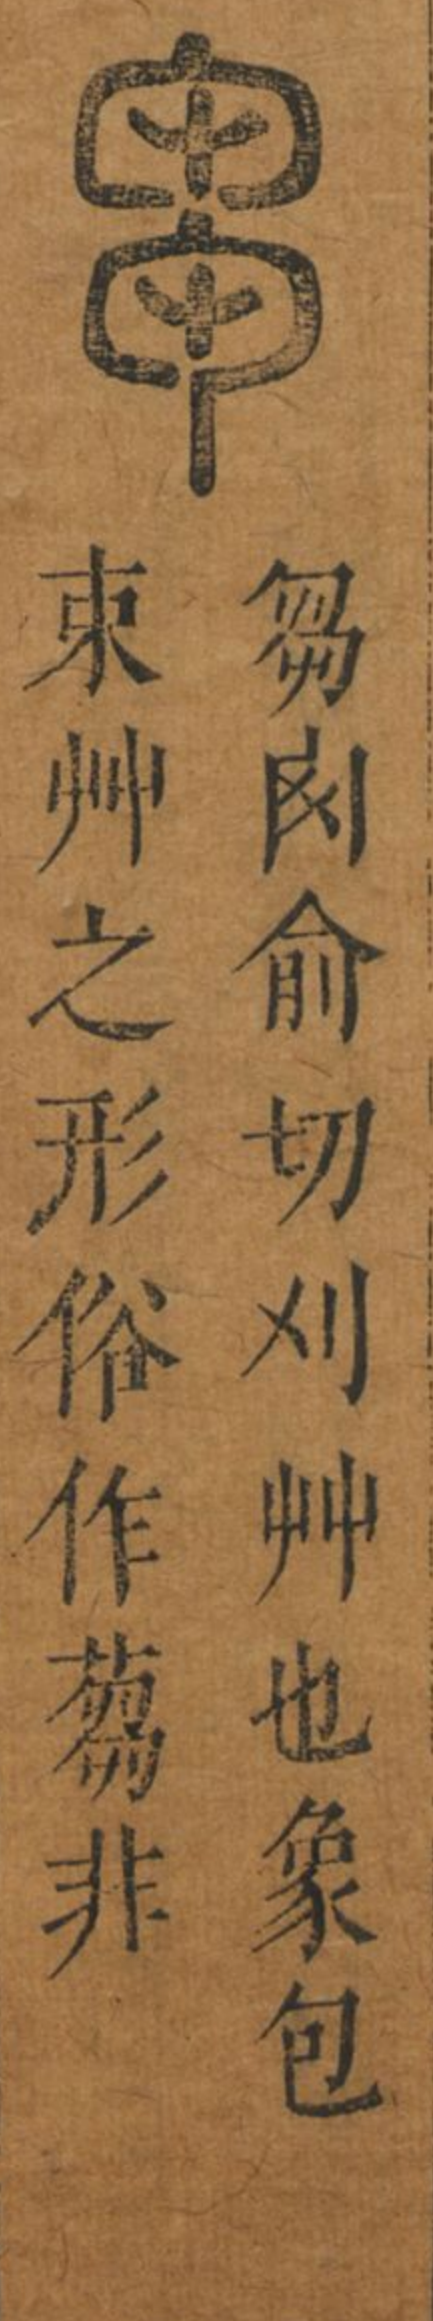 芻
芻囪俞切刈艸也象包
束艸之形俗作蒭非